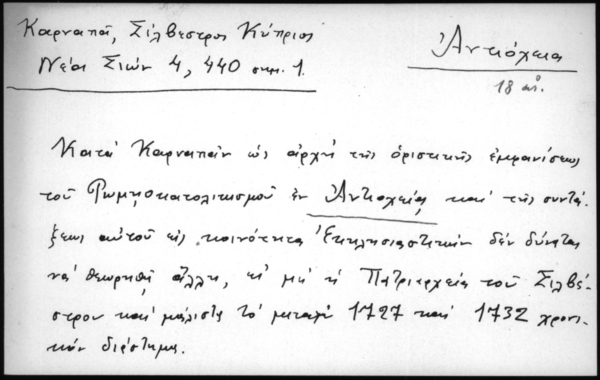 Καρναπᾶ, Σίλβεστρος Κύπριος
Νέα Σιών 4, 440 σημ. 1.
Ἀντιόχεια
18 αἰ.
Κατά Καρναπᾶν ὡς ἀρχή τῆς ὁριστικῆς ἐμφανίσεως
τοῦ Ρωμηοκατολικισμοῦ ἐν Ἀντιοχείᾳ καί τῆς συντά-
ξεως αὐτοῦ εἰς κοινότητα Ἐκκλησιαστικήν δέν δύναται
νά θεωρηθῇ ἄλλη, εἰ μή ἡ Πατριαρχεία τοῦ Σιλβέ-
στρου καί μάλιστα τό μεταξύ 1727 καί 1732 χρονι-
κόν διάστημα.